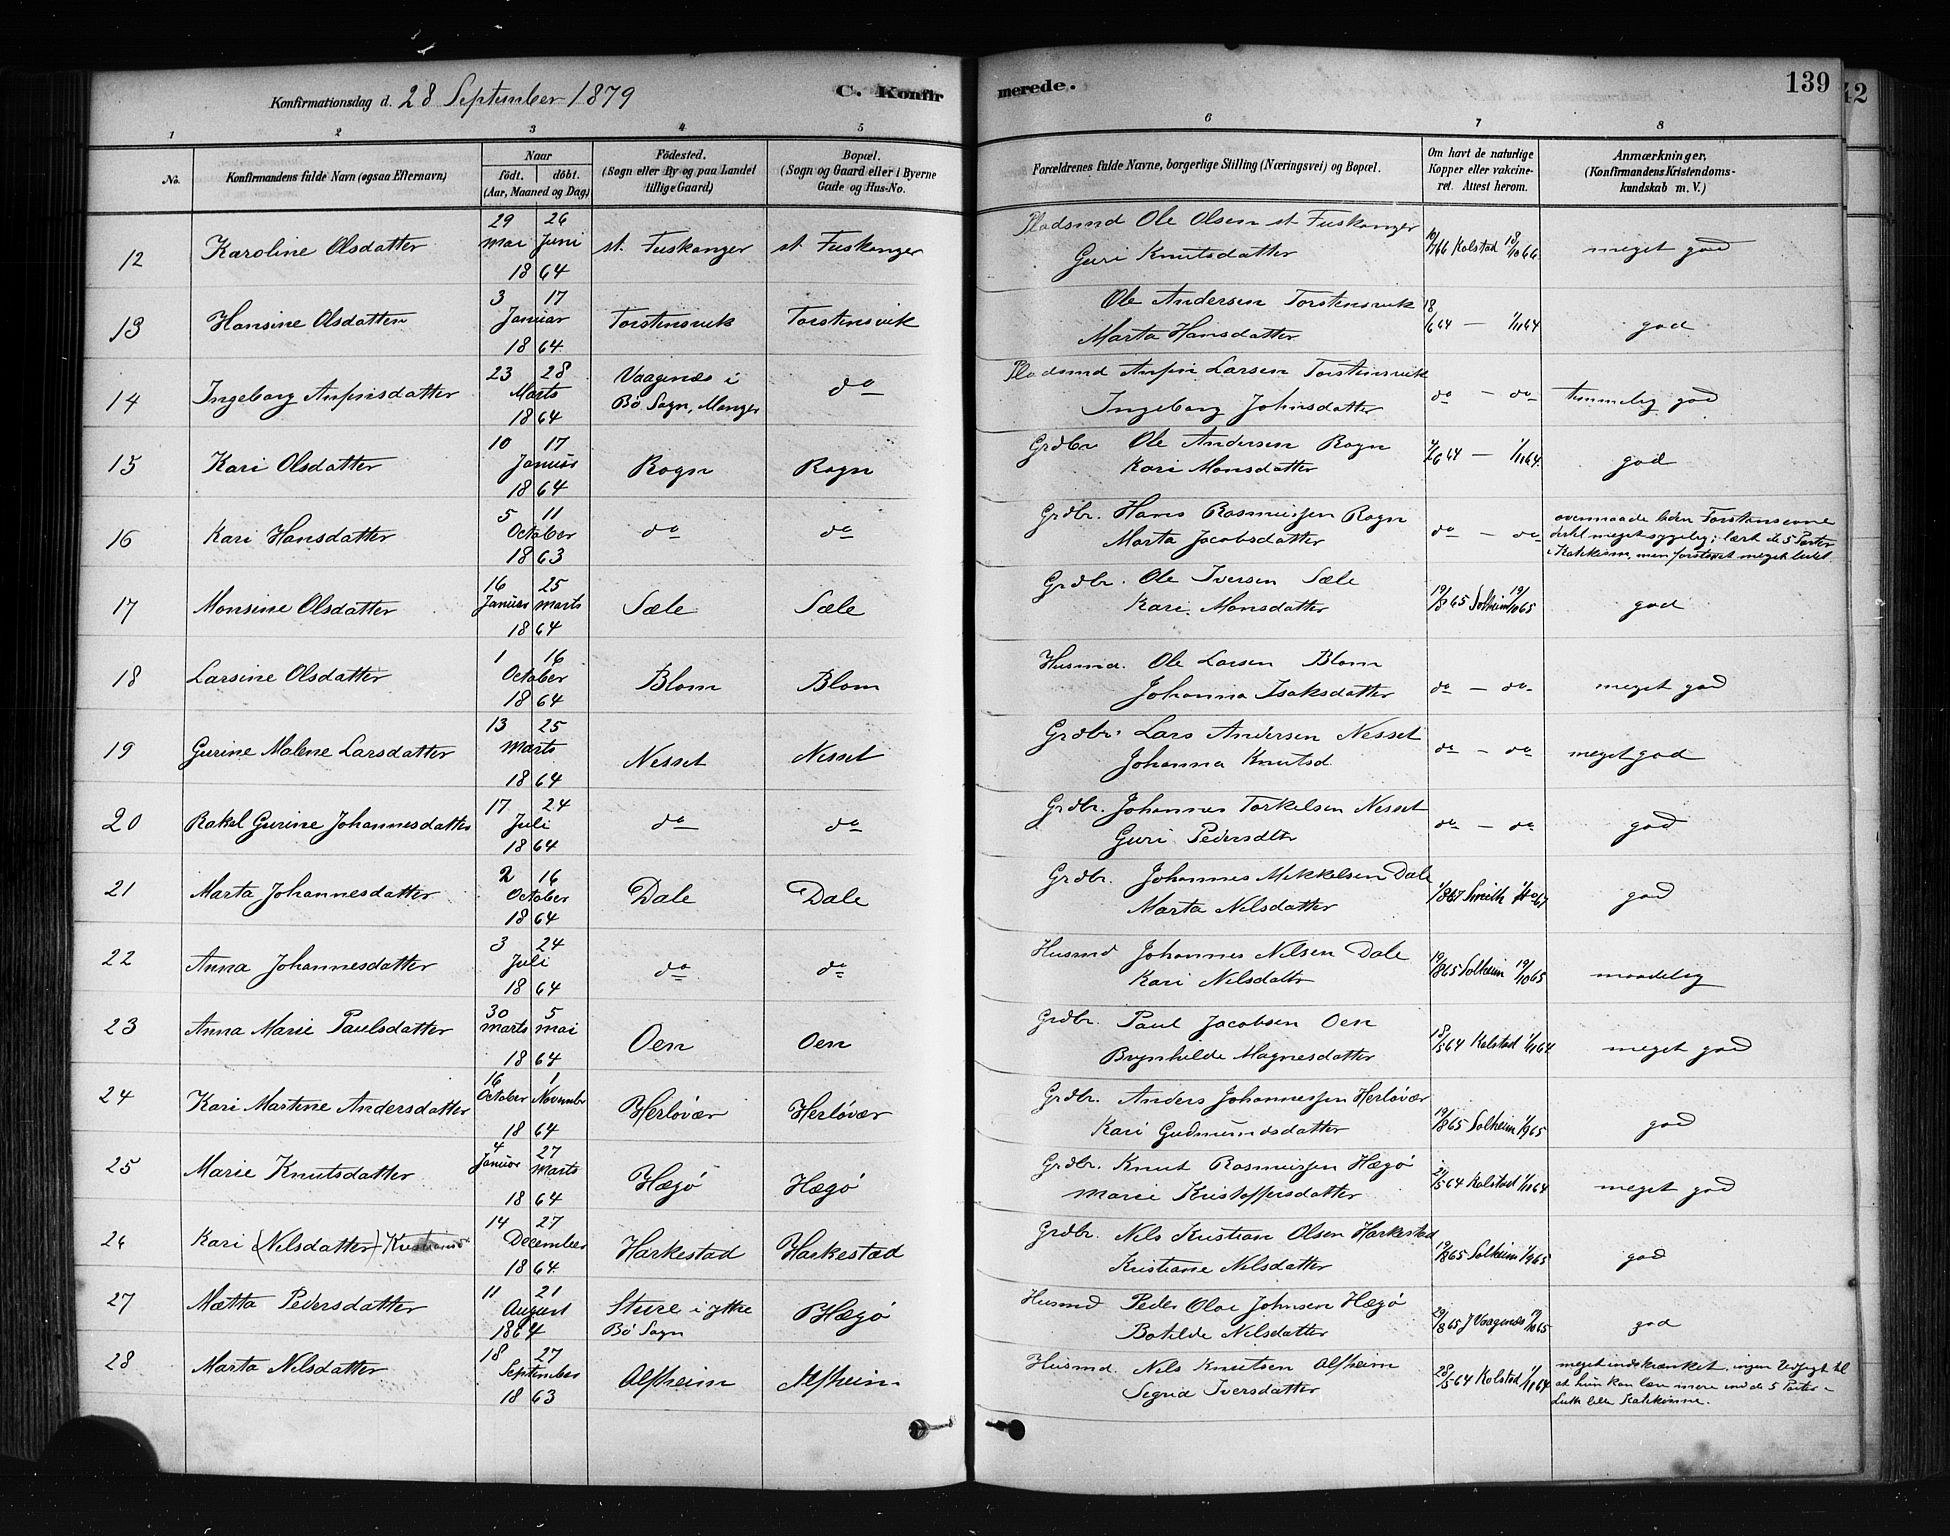 Konfirmationsdag d. 28 September 1879 C. Konfirmerede. 139
42
1 2 3 4 5 6 7 8
No. Konfirmandens fulde Navn (ogsaa Efternavn) Naar født. døbt. (Aar, Maaned og Dag) Fødested. (Sogn eller By og paa Landet tillige Gaard) Bopæl. (Sogn og Gaard eller i Byerne Gade og Hus-No. Forældrenes fulde Navne, borgerlige Stilling (Næringsvei) og Bopæl. Om havt de naturlige Kopper eller vakcineret. Attest herom. Anmærkninger, (Konfirmandens Kristendomskundskab m. V.)
12 Karoline Olsdatter 29 Mai 26 Juni 1864 st. Fuskanger st. Fuskanger Pladsmd Ole Olsen st. Fuskanger Guri Knutsdatter Kolstad 18/10 66 meget god
13 Hansine Olsdatter 3 17 Januar 1864 Torstensvik Torstensvik Ole Andersen Torstensvik Marta Hansdatter 18/6 64 — 1/11 64 god
14 Ingeborg Anfinsdatter 23 28 Marts 1864 Vaagenæs i Bø Sogn, Manger do Pladsmd Anfin Larsen Torstensvik Ingeborg Johnsdatter do — do temmelig god
15 Kari Olsdatter 10 17 Januar 1864 Rogn Rogn Grdbr. Ole Andersen Rogn Kari Monsdatter — 1/11 64 god
16 Kari Hansdatter 5 11 October 1863 do do Grdbr. Hans Rasmussen Rogn Marta Jacobsdatter do — do overmaade liden Forstansevne dertil meget sygelig; lært de 5 Parter i Katekism. men forstaaet meget lidet.
17 Monsine Olsdatter 16 Januar 25 Marts 1864 Sæle Sæle Grdbr. Ole Iversen Sæle Kari Monsdatter 19/8 65 Solheim 19/10 65 god
18 Larsine Olsdatter 1 16 October 1864 Blom Blom Husmd. Ole Larsen Blom Johanna Isaksdatter do — do meget god
19 Gurine Malene Larsdatter 13 25 Marts 1864 Nesset Nesset Grdbr. Lars Andersen Nesset Johanna Knutsd. do — do meget god
20 Rakel Gurine Johannesdatter 17 24 Juli 1864 do do Grdbr. Johannes Torkelsen Nesset Guri Pedersdtr do — do god
21 Marta Johannesdatter 2 16 October 1864 Dale Dale Grdbr. Johannes Mikkelsen Dale Marta Nilsdatter Smith god
22 Anna Johannesdatter 3 24 Juli 1864 do do Husmd Johannes Nilsen Dale Kari Nilsdattr 19/8 65 Solheim 19/10 65 maadelig
23 Anna Marie Paulsdatter 30 Marts 5 Mai 1864 Oen Oen Grdbr. Paul Jacobsen Oen Brynhilde Magnesdatter 18/5 64 Kolstad 1/11 64 meget god
24 Kari Martine Andersdatter 16 October 1 November 1864 Herløvær Herløvær Grdbr. Anders Johannessen Herløvær Kari Gudmundsdatter 19/8 65 Solheim 1/9 65 god
25 Marie Knutsdatter 4 Januar 27 Marts 1864 Hægø Hægø Grdbr. Knut Rasmussen Hægø Marie Kristoffersdatter Kolstad 1/11 64 meget god
26 Kari (Nilsdatter) 14 27 December 1864 Harkestad Harkestad Grdbr. Nils Kristian Olsen Harkestad Kristiane Nilsdatter 19/8 65 Solheim 1/9 65 god
27 Mætta Pedersdatter 11 21 August 1864 Sture i ytre Bø Sogn Hægø Husmd Peder Olai Johnsen Hægø Botilde Nilsdatter 29/8 65 J Vaagenæs god
28 Marta Nilsdatter 18 27 September 1863 Alfheim Alfheim Husmd. Nils Knutsen Alfheim Segna Iversdatter 28/5 64 Kolstad 1/11 64 meget indskrænket, ingen Udsigt til at hun kan lære mere end de 5 Parter i Luth. lille Katekisme.